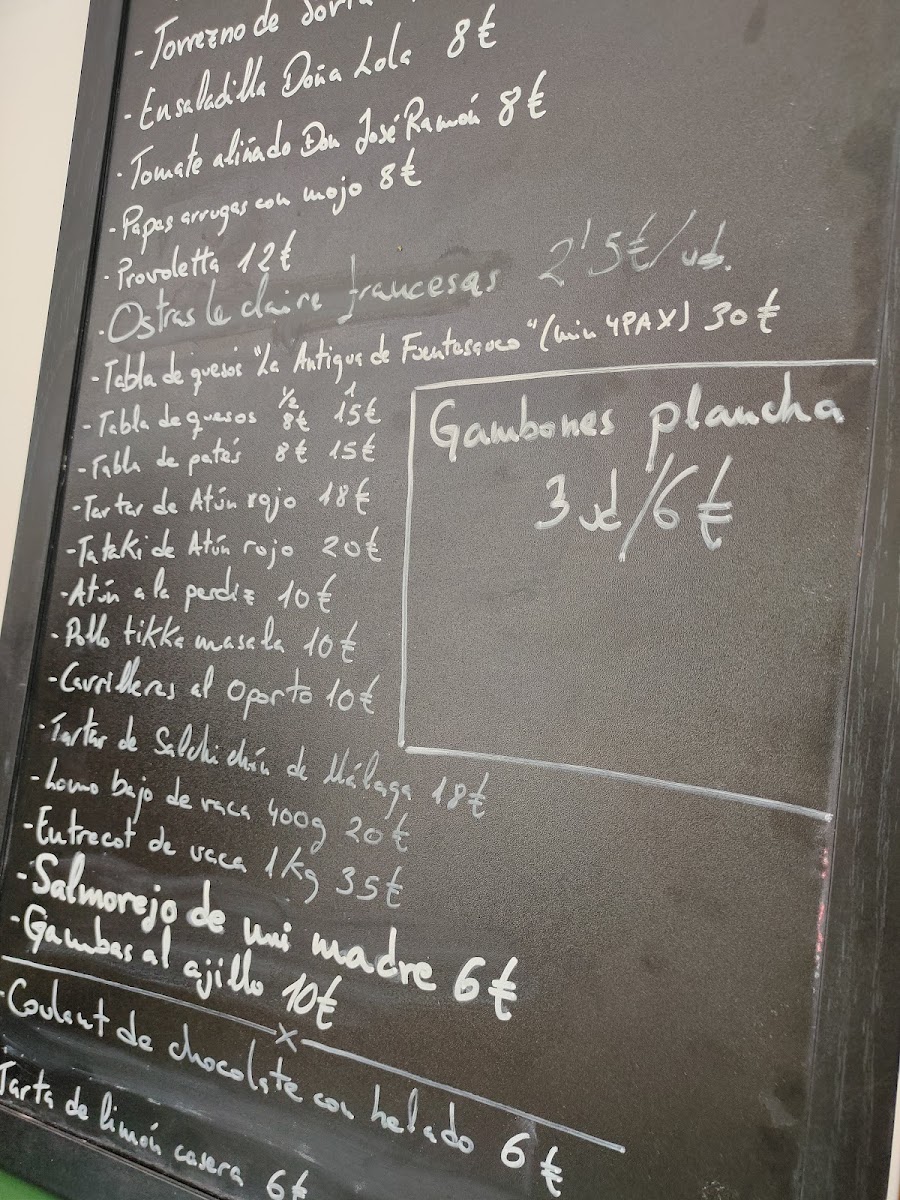 - Torrezno de Soria
- Ensaladilla Doña Lola 8€
- Tomate aliñado Don José Ramón 8€
- Papas arrugas con mojo 8€
- Provoletta 12€
- Ostras le claire francesas 2'5€/ud.
- Tabla de quesos "La Antigua de Fuentesauco" (min 4PAX) 30€
1/2 1
- Tabla de quesos 8€ 15€
- Tabla de patés 8€ 15€
- Tartar de Atún rojo 18€
- Tataki de Atún rojo 20€
- Atún a la perdiz 10€
- Pollo tikka masala 10€
- Carrilleras al Oporto 10€
- Tartar de Salchichón de Málaga 18€
- Lomo bajo de vaca 400g 20€
- Entrecot de vaca 1Kg 35€
- Salmorejo de mi madre 6€
- Gambas al ajillo 10€
- Coulant de chocolate con helado 6€
Tarta de limón casera 6€
Gambones plancha
3 ud/6€